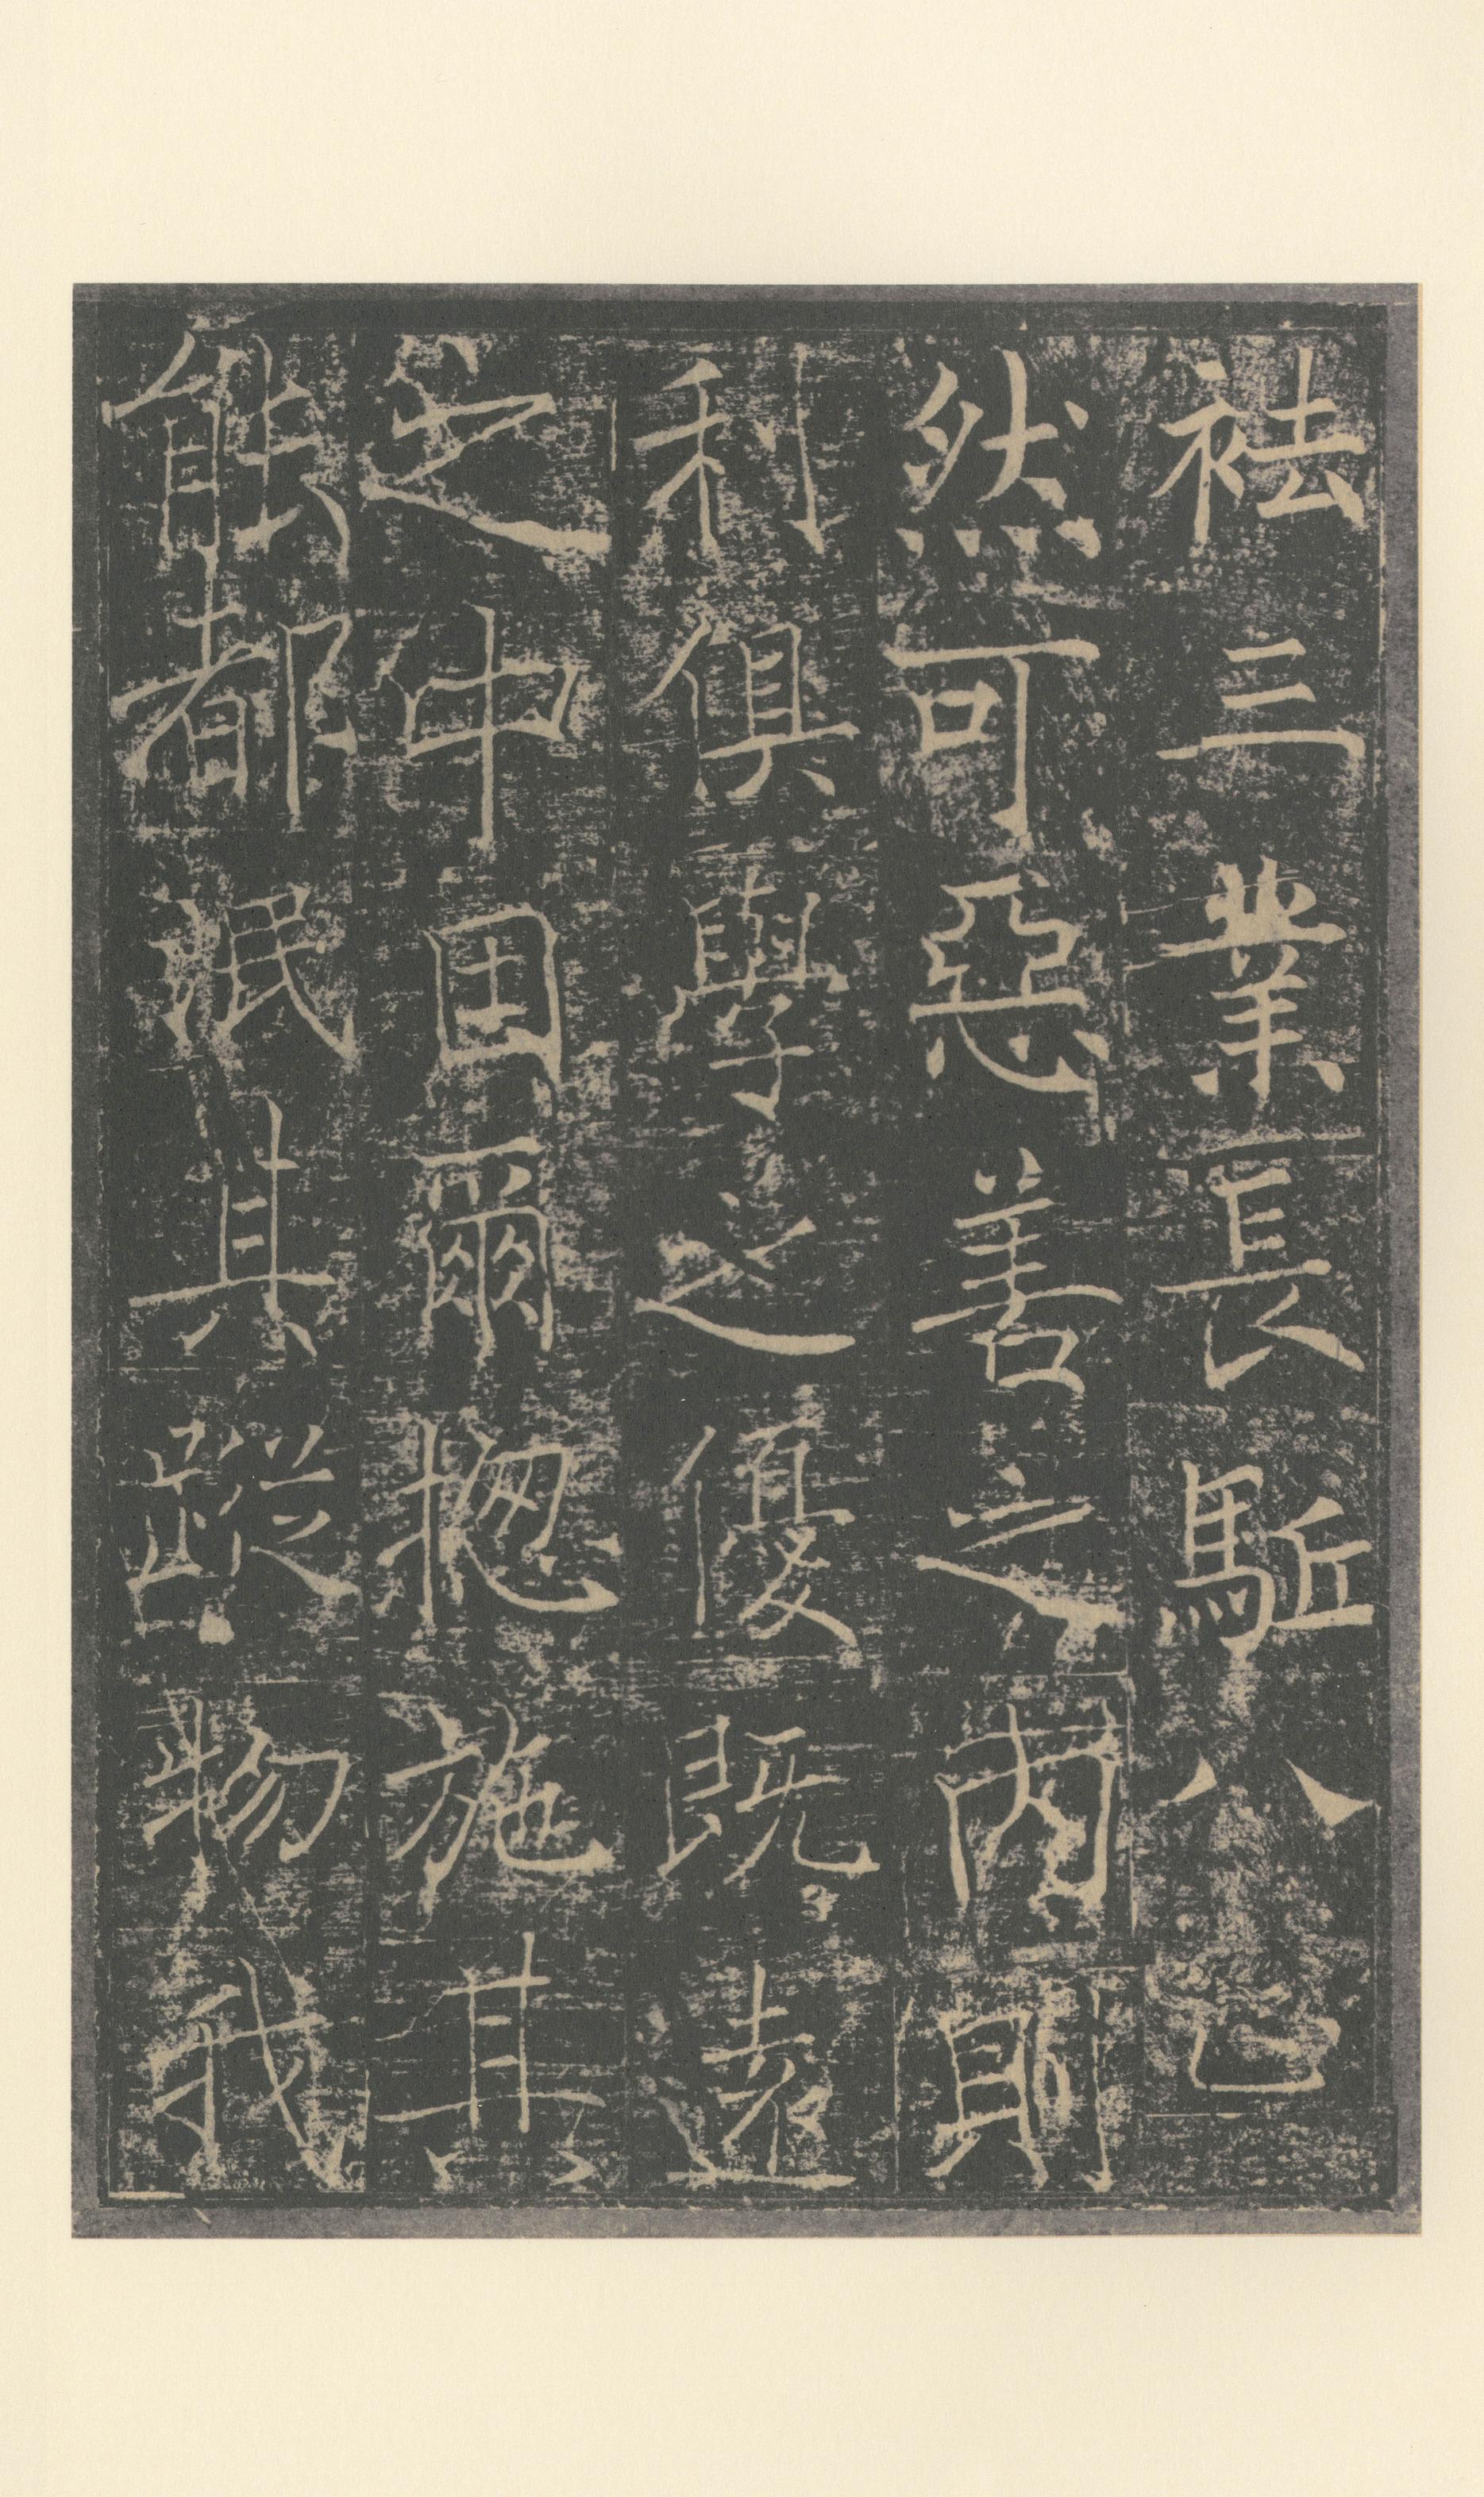 祛三業長駈八已
然可惡善之两則
利俱學之優既遠
之中国爾揔施其
能都泯其蹤物我